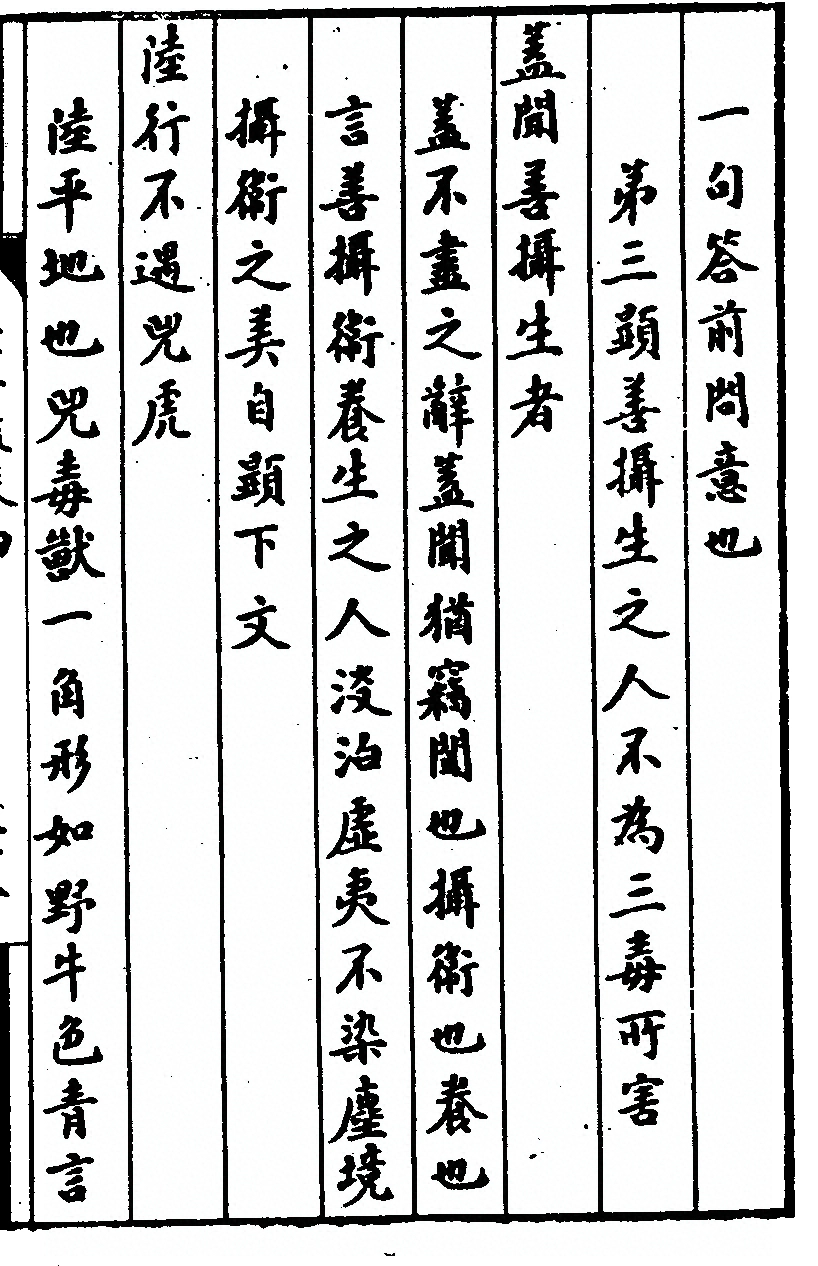 一句答前問意也
第三顯善攝生之人不為三毒所害
蓋聞善攝生者
蓋不盡之辭蓋聞猶竊聞也攝衛也養也
言善攝衛養生之人淡泊虛夷不染塵境
攝衛之美自顯下文
陸行不遇兕虎
陸平地也兕毒獸一角形如野牛色青言